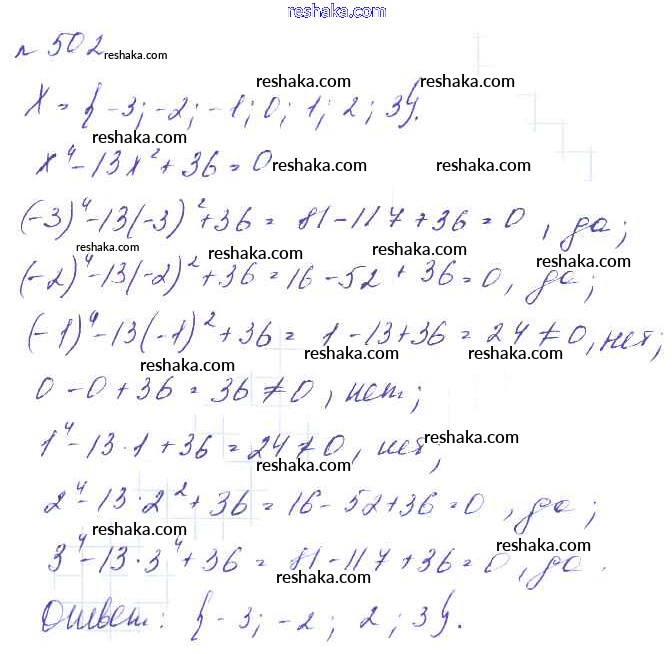 www.reshaka.com
№ 502 reshaka.com
reshaka.com reshaka.com
X = { -3; -2; -1; 0; 1; 2; 3}.
reshaka.com reshaka.com
x⁴ - 13x² + 36 = 0 reshaka.com reshaka.com
(-3)⁴ - 13(-3)² + 36 = 81 - 117 + 36 = 0, да;
reshaka.com reshaka.com reshaka.com
(-2)⁴ - 13(-2)² + 36 = 16 - 52 + 36 = 0, да;
(-1)⁴ - 13(-1)² + 36 = 1 - 13 + 36 = 24 ≠ 0, нет;
reshaka.com reshaka.com
0 - 0 + 36 = 36 ≠ 0, нет;
reshaka.com
1⁴ - 13·1 + 36 = 24 ≠ 0, нет,
reshaka.com
reshaka.com
2⁴ - 13·2² + 36 = 16 - 52 + 36 = 0, да;
reshaka.com reshaka.com
3⁴ - 13·3⁴ + 36 = 81 - 117 + 36 = 0, да.
reshaka.com
Ответ: { -3; -2; 2; 3}.
reshaka.com reshaka.com